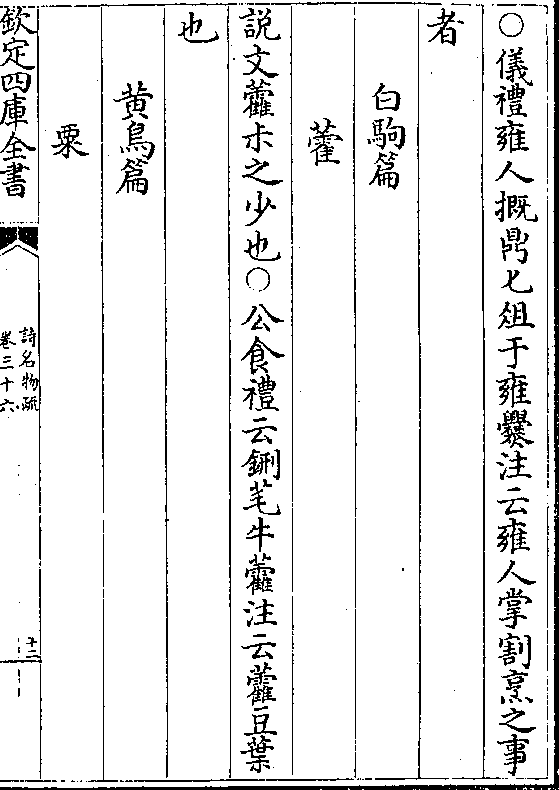 ○儀禮雍人摡鼎匕俎于雍爨注云雍人掌割烹之事
者
白駒篇
藿
説文藿尗之少也○公食禮云鉶芼牛藿注云藿豆葉
也
黄鳥篇
粟
欽定四庫全書
詩名物疏
卷三十六
十二